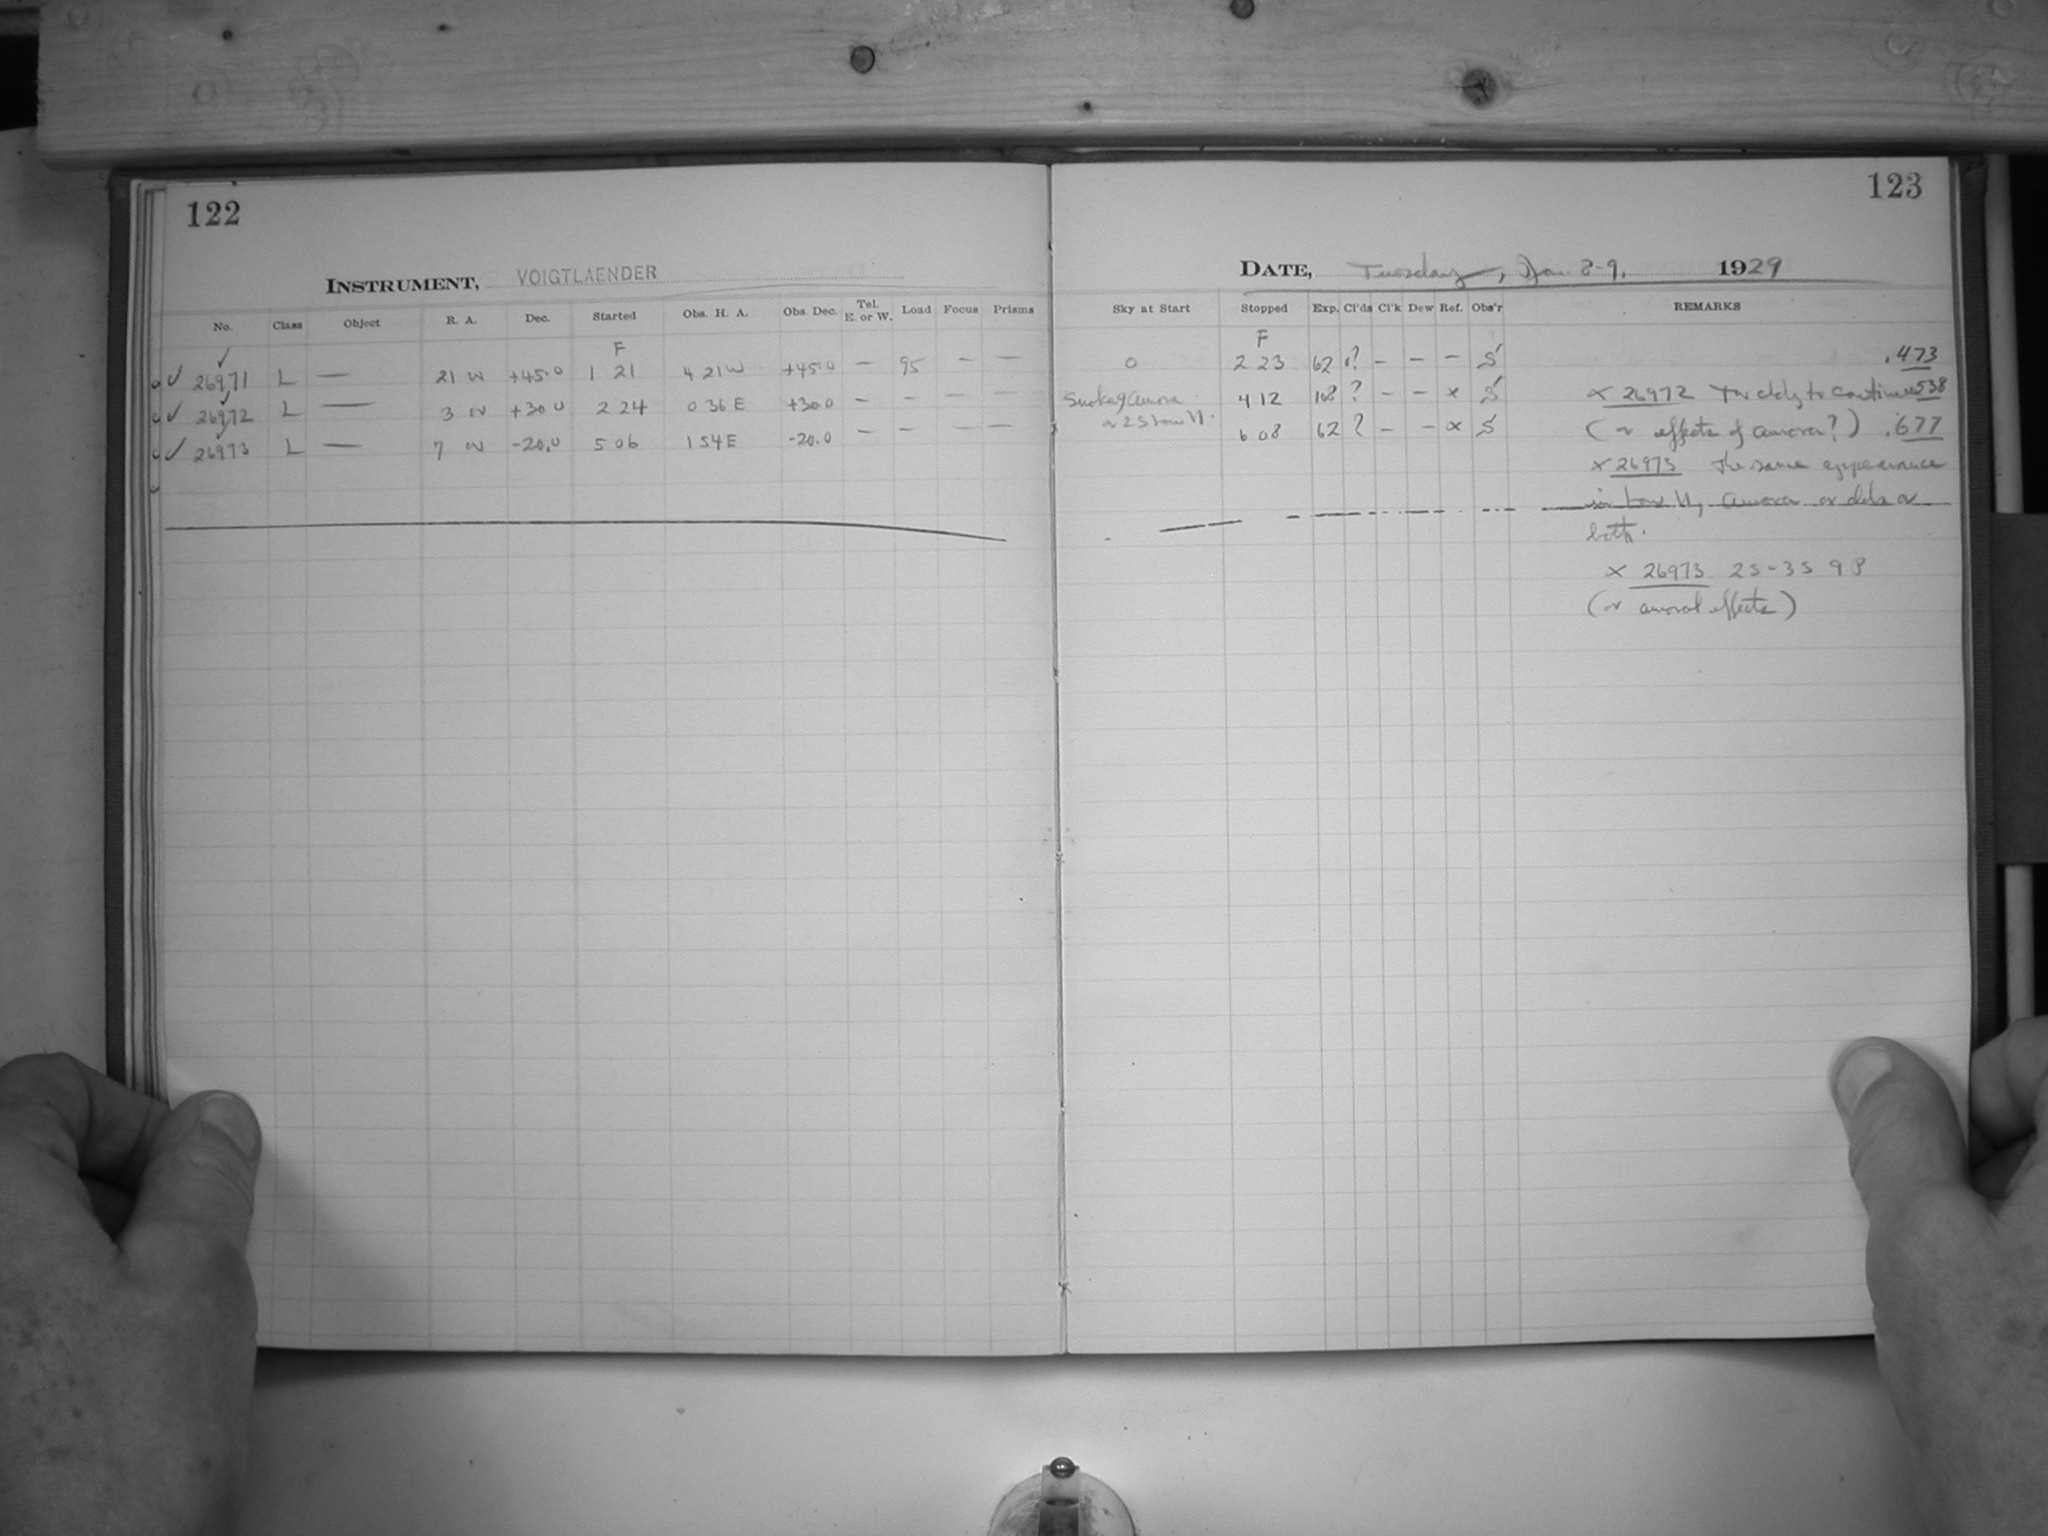 122
INSTRUMENT, VOIGTLAENDER
No. Class Object R. A. Dec. Started Obs. H. A. Obs. Dec. Tel. E. or W. Load Focus Prisms
F
26971 L — 21 W +45.0 1 21 4 21 W +45.0 — 95 — —
26972 L — 3 W +30.0 2 24 0 36 E +30.0 — — — —
26973 L — 7 W -20.0 5 06 1 54 E -20.0 — — — —
123
DATE, Tuesday, Jan 8-9, 1929
Sky at Start Stopped Exp. Cl'ds Cl'k Dew Ref. Obs'r REMARKS
F
0 2 23 62 ? — — — S .473
Smoke & Aurora 4 12 108 ? — — x S x 26972 Too cldy to continue .538
or 2S low N. 6 08 62 ? — — x S (or effects of aurora?) .677
x 26973 The same appearance
in low N, aurora or clds or
both.
x 26973 2S-3S 9P
(or auroral effects)